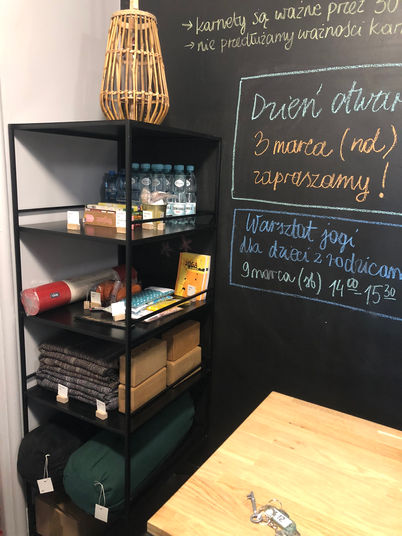 → karnety są ważne przez 30
→ nie przedłużamy ważności kar
Dzień otwar
3 marca (nd.)
zapraszamy!
Warsztat jogi
dla dzieci z rodzicami
9 marca (sb) 14⁰⁰-15³⁰